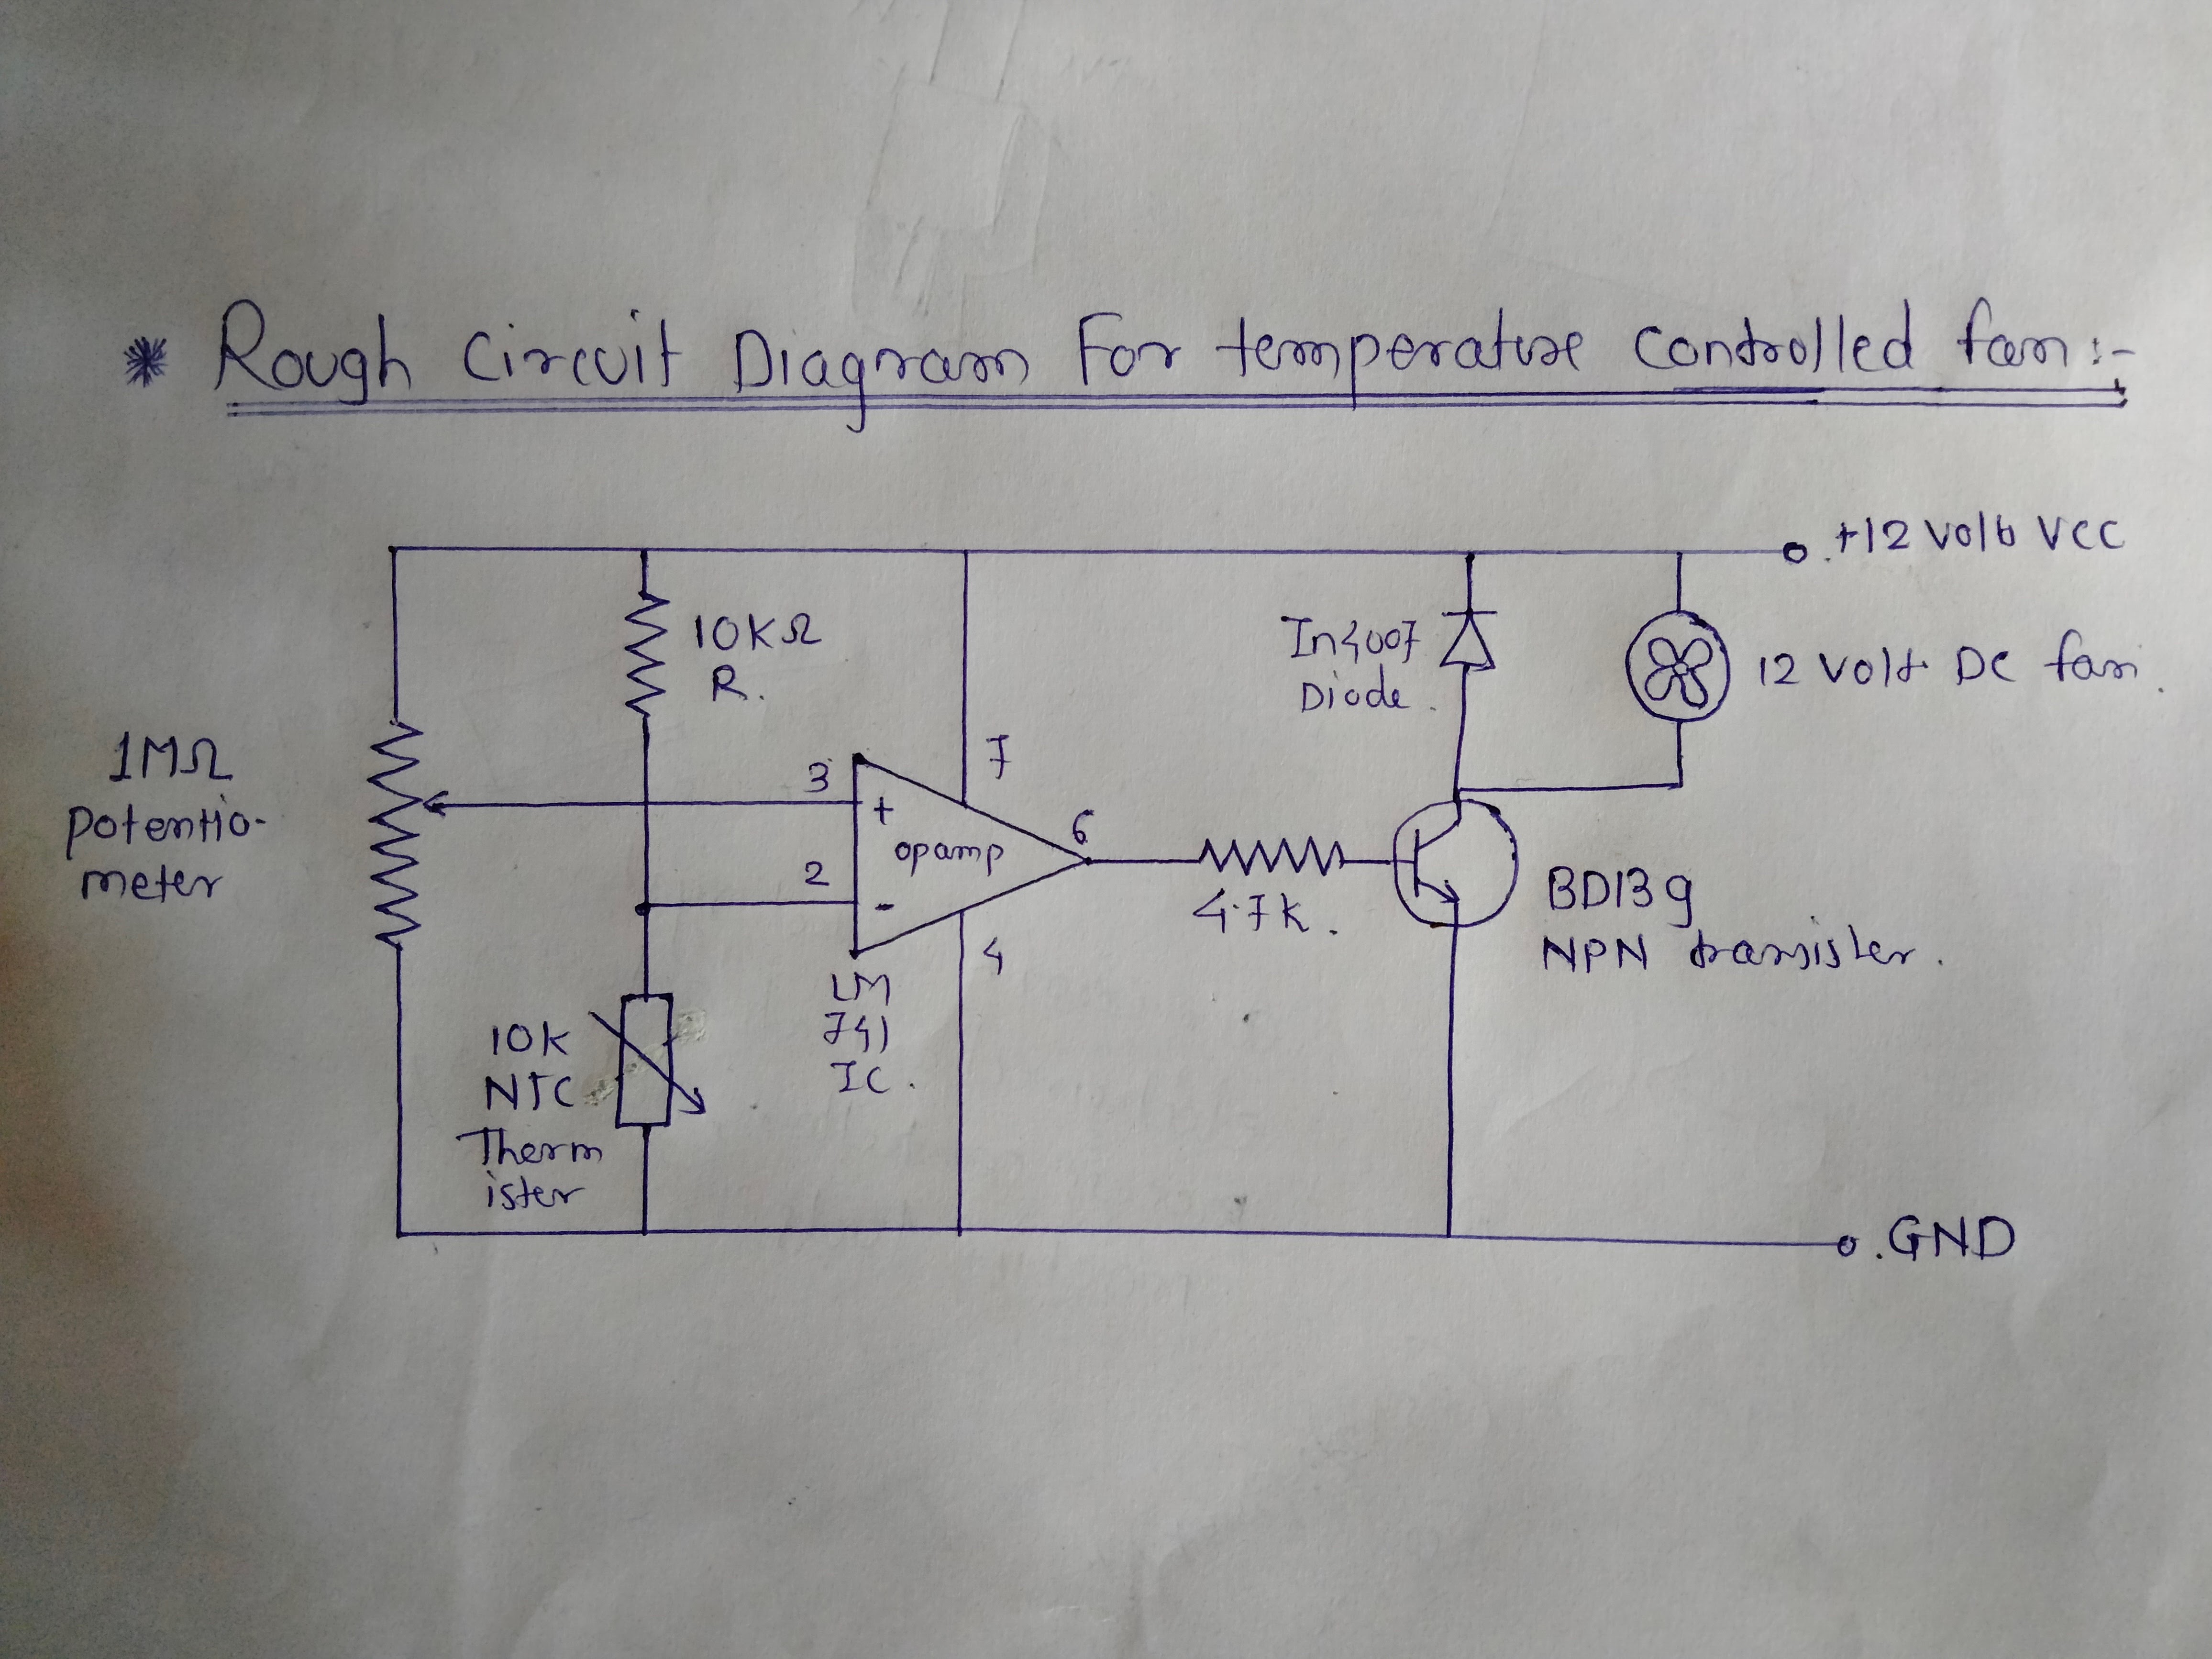 * Rough Circuit Diagram For temperature controlled fan :-
+12 Volt VCC
10KΩ
R.
In4007
Diode.
12 Volt DC fan.
1MΩ
Potentio-
meter
3
+
7
opamp
6
2
-
4
4.7K.
BD139
NPN transister.
LM
741
IC.
10K
NTC
Therm
ister
GND